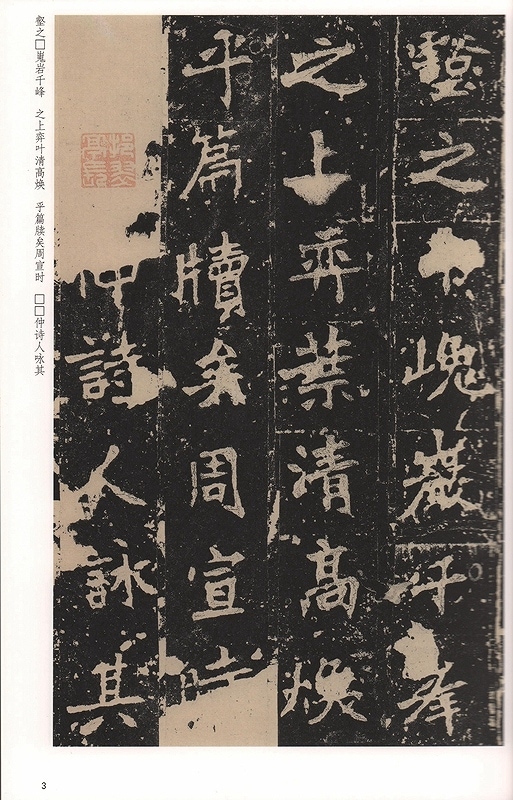 壑之
嵬巖千峯
之上弈葉清高煥
乎篇牘矣周宣時
仲詩人詠其
壑之□嵬岩千峰　之上弈叶清高焕　乎篇牍矣周宣时　□□仲诗人咏其
3